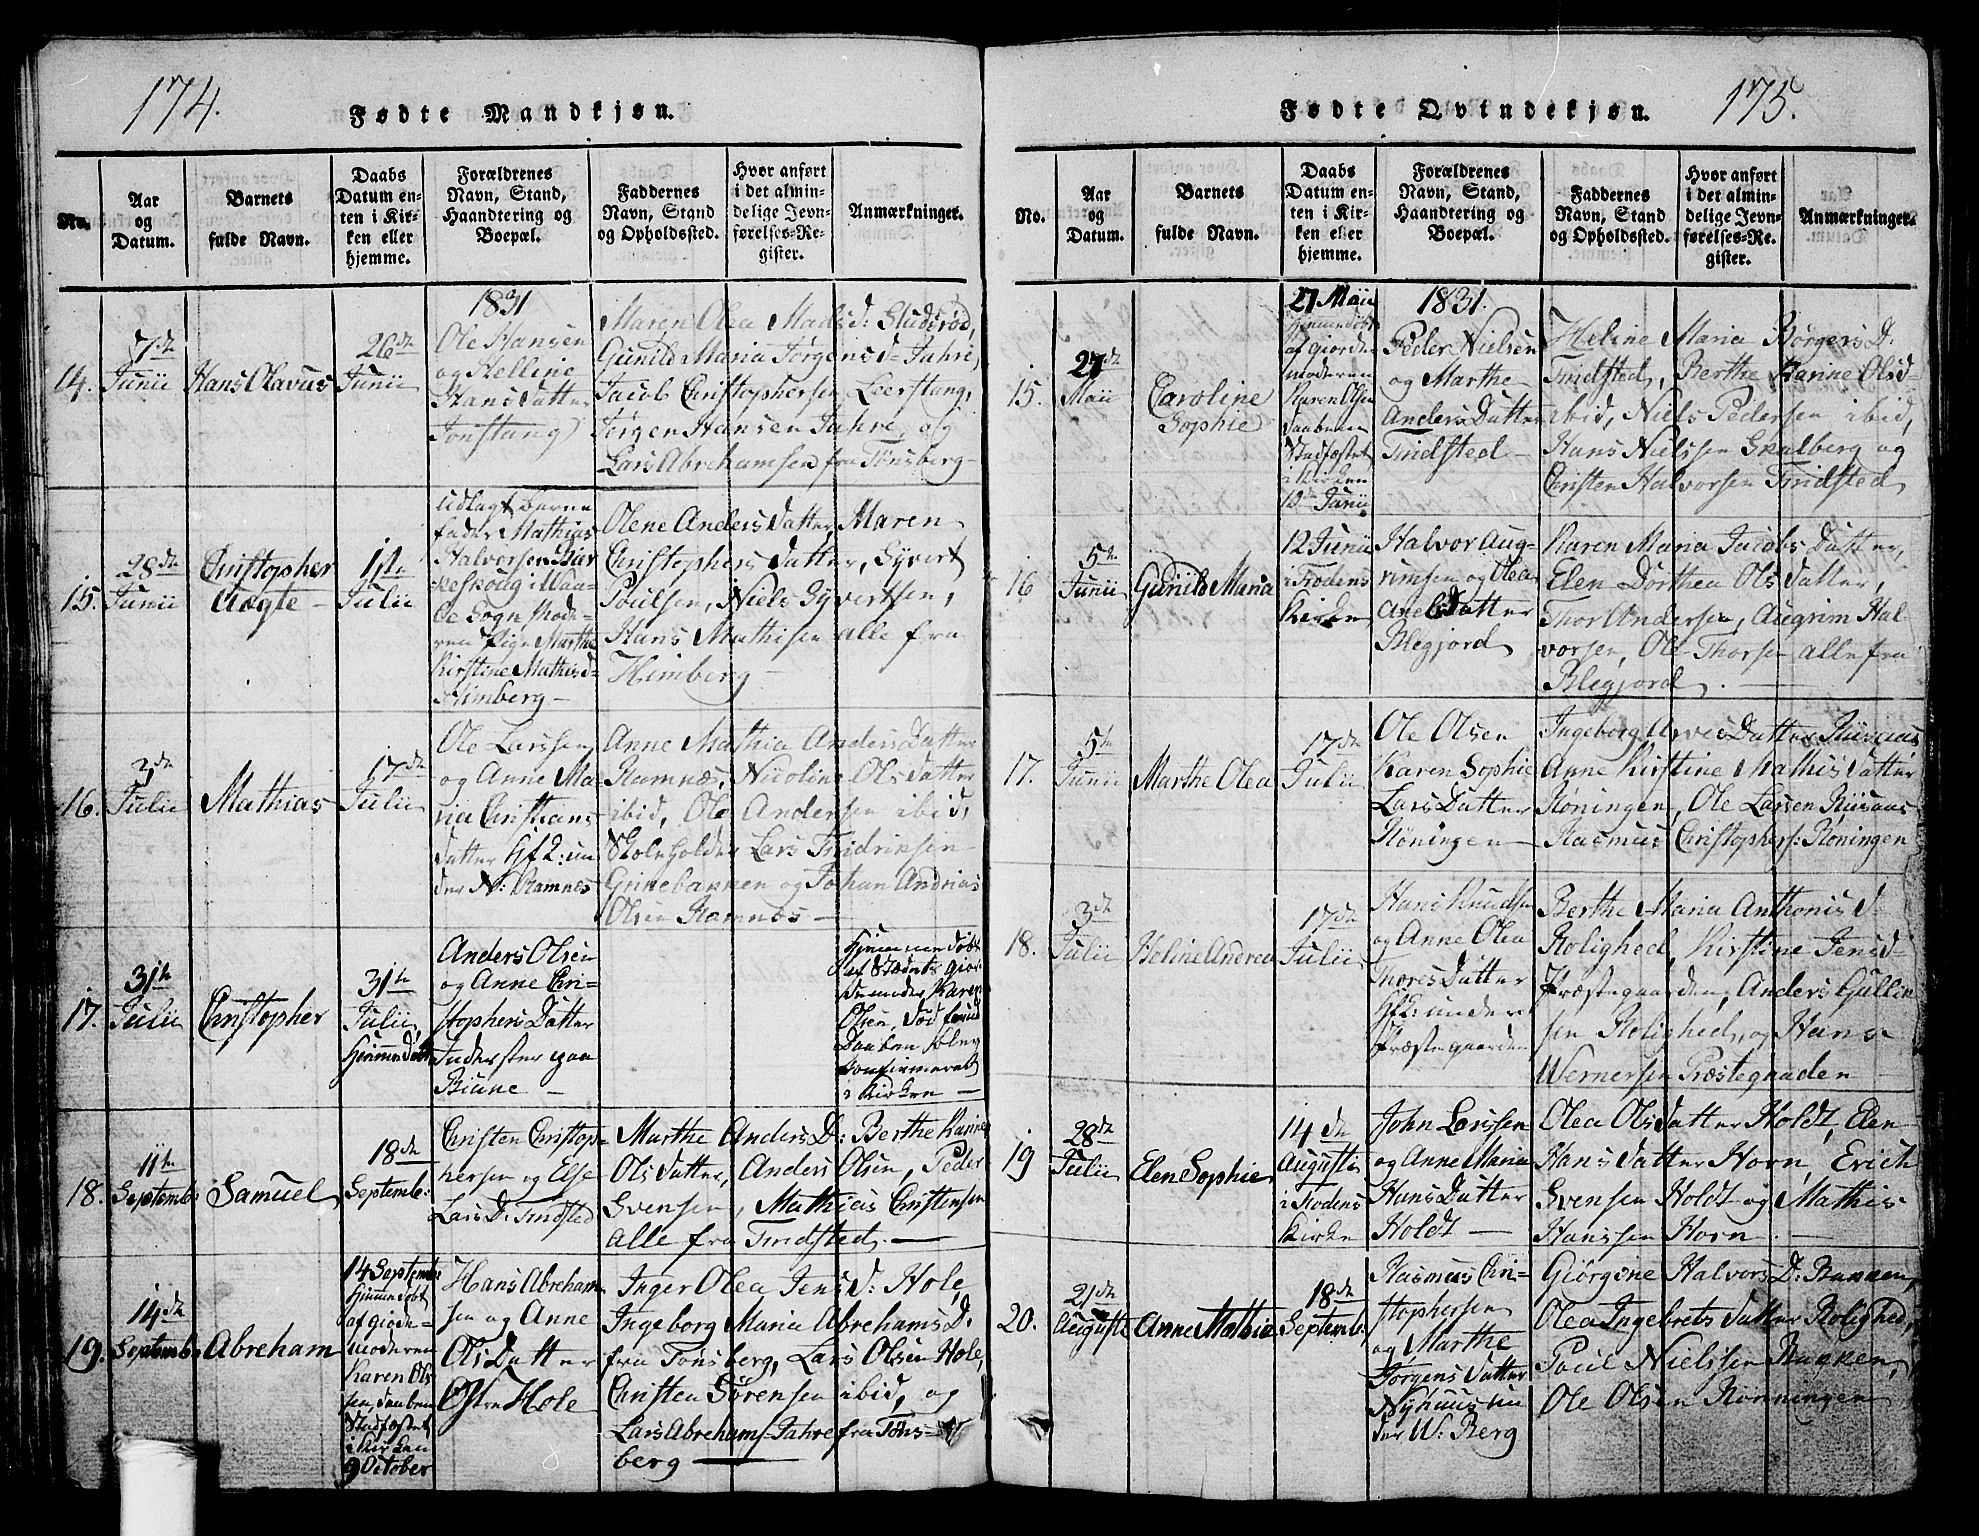 174.
Fødte Mandkjøn.
No.
Aar
og
Datum.
Barnets
fulde Navn.
Daabs
Datum en-
ten i Kir-
ken eller
hjemme.
Forældrenes
Navn, Stand,
Haandtering og
Boepæl.
Faddernes
Navn, Stand
og Opholdssted.
Hvor anført
i det almin-
delige Jevn-
førelses-Re-
gister.
Anmærkninger.
14.
7de
Junii
Hans Olavus
26de
Junii
1831
Ole Hansen
og Helline
Hans Datter
Jonstang
Maren Olea Mads d: Sludsrød,
Gunild Maria Jørgens d- Jahre,
Jacob Christophersen Leerstang,
Jørgen Hansen Jahre, og
Lars Abrehamsen fra Tønsberg-
15.
28de
Junii
Christopher
Aagte -
1te
Julii
Udlagt barne
fader Mathias
Halvorsen
i Vaa-
le Sogn Mode-
ren Pige Marthe
Kirstine Mathis d-
Himberg-
Olene Anders Datter, Maren
Christophers Datter, Syvert
Poulsen, Niels Syvertsen,
Hans Mathisen alle fra
Himberg-
16.
3de
Julii
Mathias
17de
Julii
Ole Larssen
og Anne Ma-
ria Christians
datter Hf 2: un
der N: Ramnes
Anne Mathia Anders Datter
Ramnes, Nicoline Ols datter
ibid, Ole Andersen ibid,
Skoleholder Lars Fridriksen
Grinebakken og Johan Andrias
Olsen Ramnes-
17.
31te
Julii
Christopher
31te
Julii,
Hjemme døbt
Anders Olsen
og Anne Chri-
stophers Datter
Inderster paa
Biune-
Hjemmedøbt
af Stedets gior-
demoder Karen
Olsen, død forind
Daaben blev
Confirmeret
i Kirken-
18.
11te
Septembr
Samuel
18de
Septemb:
Christen Christop-
hersen og Else
Lars D: Tindsted
Marthe Anders D: Berthe Hanne
Ols datter, Anders Olsen, Peder
Svensen, Mathias Christensen
Alle fra Tindsted.-
19.
14de
Septemb:
Abreham
14 Septemb:
hjemmedøbt
af giorde-
moderen
Karen Ol-
sen, daaben
Stadfæstet
i Kirken
9 October
Hans Abreham
sen og Anne
Ols Datter
Østre Hole
Inger Olea Jens d: Hole,
Ingeborg Maria Abrehams D.
fra Tønsberg, Lars Olsen Hole,
Christen Sørensen ibid, og
Lars Abrehams- Jahre fra Tøns-
berg-
Fødte Qvindekjøn.
175.
No.
Aar
og
Datum.
Barnets
fulde Navn.
Daabs
Datum en-
ten i Kir-
ken eller
hjemme.
Forældrenes
Navn, Stand,
Haandtering og
Boepæl.
Faddernes
Navn, Stand
og Opholdssted.
Hvor anført
i det almin-
delige Jevn-
førelses-Re-
gister.
Anmærkninger.
15.
27de
Maii
Caroline
Sophie
27 Maii
Hiemmedøbt
af giorde-
moderen
Karen Olsen
Daaben
Stadfæstet
i Kirken
10de Junii
1831.
Peder Nielsen
og Marthe
Anders Datter
Tindsted-
Heline Maria Børgers D.
Tindsted, Berthe Hanne Ols d-
ibid, Niels Pedersen ibid,
Hans Nielssen Skalberg og
Christen Halvorsen Tindsted
16
5te
Junii
Gunild Maria
12 Junii
i Fodens
Kirken
Halvor Aug-
rimsen og Olea
Axels Datter
Blegjord
Karen Maria Jacobs Datter,
Elen Dorthea Ols datter,
Thor Andersen, Augrim Hal-
vorsen, Ole Thorsen alle fra
Blegjord.-
17.
5te
Junii
Marthe Olea
17de
Julii
Ole Olsen
Karen Sophie
Lars Datter
Røningen-
Ingeborg Arves Datter Riisaas
Anne Kirstine Mathis Datter
Røningen, Ole Larsen Riisaas
Rasmus Christophers: Røningen
18.
3de
Julii
Holine Andrea
17de
Julii
Hans Knudsen
og Anne Olea
Thores Datter
Hf 2: under
Præstegaarden
Berthe Maria Anthonis d-
Rolighed, Kirstine Jens d:
Præstegaarden, Anders Gullik
sen Rolighed, og Hans
Wernersen Præstegaaden-
19
28de
Julii
Elen Sophie
14de
Auguste
i Fodens
Kirke
John Larssen
og Anne Maria
Hans Datter
Holdt-
Olea Ols datter Holdt, Elen
Hans datter Horn, Erich
Svensen Holdt og Mathis
Hanssen Horn.-
20.
21de
Auguste
Anne Mathia
18de
Septemb:
Rasmus Chri-
stophersen
og Marthe
Jørgens datter
Nyhuus un
der W: Berg
Giørgine Halvors D: Bakken,
Olea Ingebrets datter Rolighed,
Poul Nielssen Bakken,
Ole Olsen Rønningen